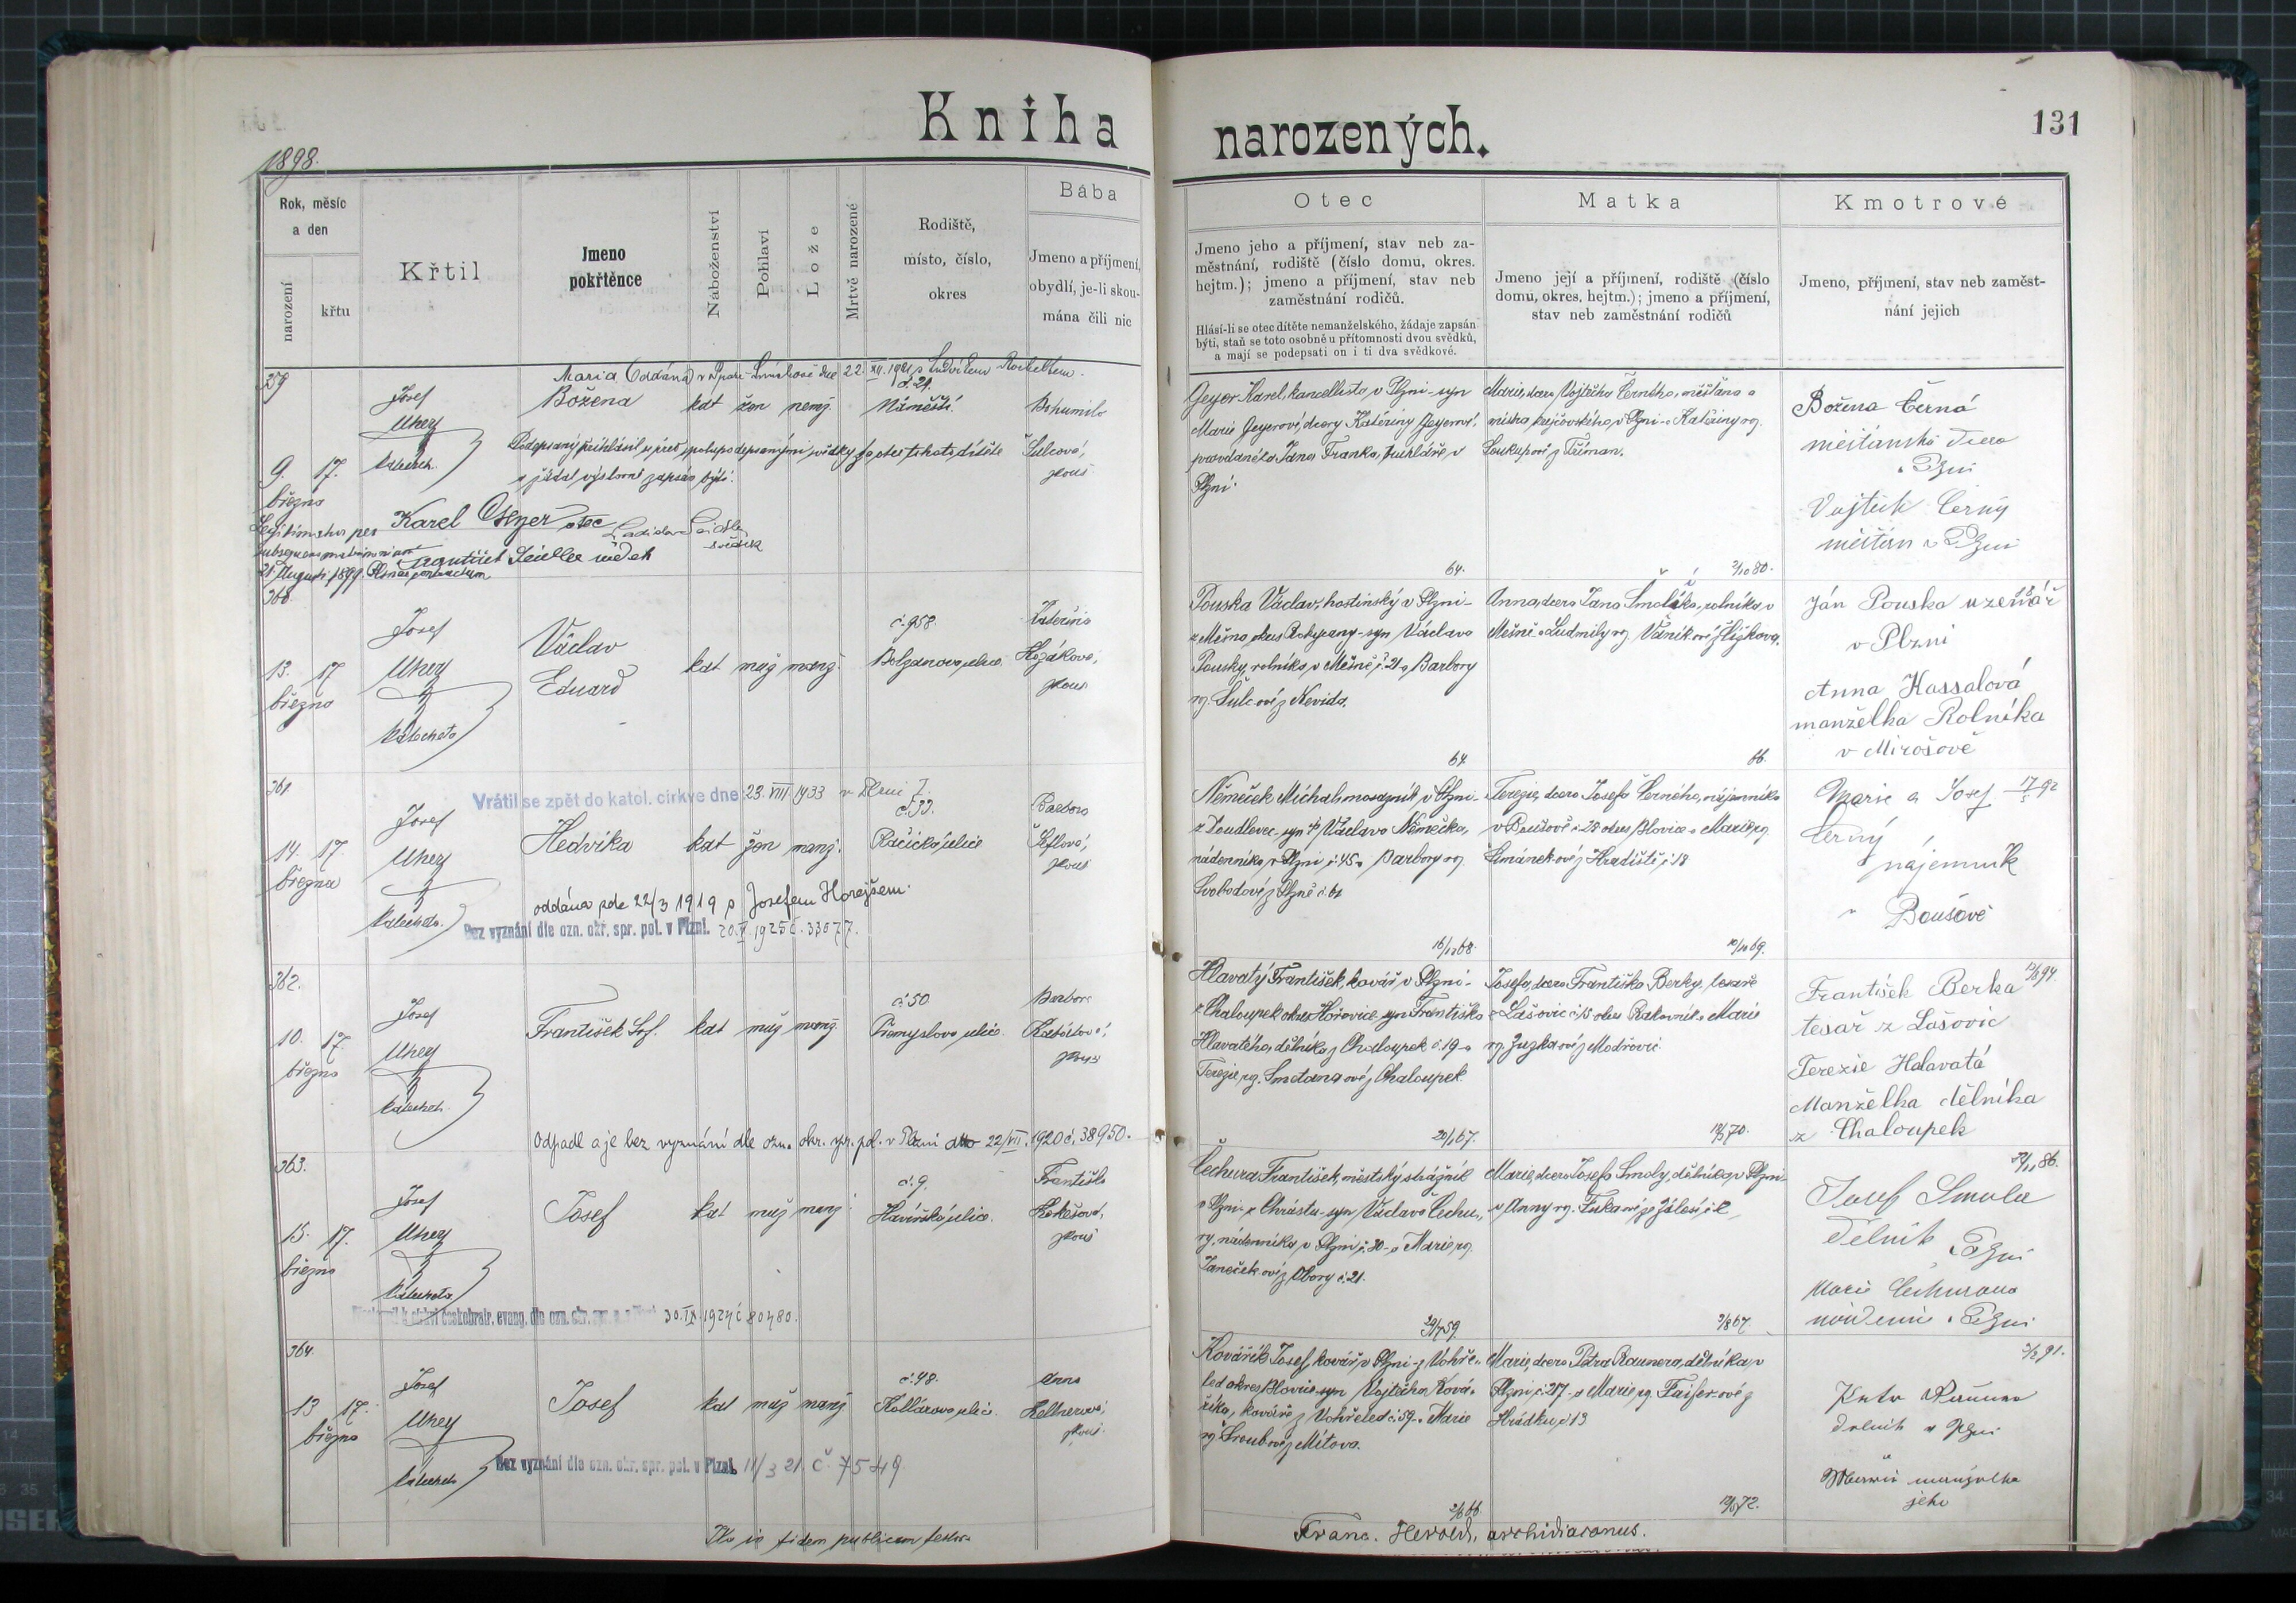 Kniha
narozených.
131
1898.
Rok, měsíc
a den
narození
křtu
Křtil
Jmeno
pokřtěnce
Náboženství
Pohlaví
Lože
Mrtvě narozené
Rodiště,
místo, číslo,
okres
Bába
Jmeno a příjmení,
obydlí, je-li skou-
mána čili nic
Otec
Jmeno jeho a příjmení, stav neb za-
městnání, rodiště (číslo domu, okres.
hejtm.); jmeno a příjmení, stav neb
zaměstnání rodičů.
Hlásí-li se otec dítěte nemanželského, žádaje zapsán
býti, staň se toto osobně u přítomnosti dvou svědků,
a mají se podepsati on i ti dva svědkové.
Matka
Jmeno její a příjmení, rodiště (číslo
domu, okres. hejtm.); jmeno a příjmení,
stav neb zaměstnání rodičů
Kmotrové
Jmeno, příjmení, stav neb zaměst-
nání jejich
359
Maria Oddána v dne 22. XII. 1921 s Ludvíkem
Josef
Uhey
katechet.
Božena
kat žen nemž.
č. 21.
Náměstí.
Bohumila
Šulcová,
zkouš
9. 17.
března
Podepsaný přihlásil se před spolupodepsanými svědky za otce tohoto dítěte
a žádal výslovně zapsán býti.
Karel Geyer otec
Ladislav Seidler
svědek
Seidler svědek
21. Augusti 1899.
Geyer Karel, kancellista v Plzni - syn
Marie Geyerové, dcery Kateřiny Geyerové,
provdané za Jana Franka, truhláře v
Plzni.
64.
Marie, dcera Vojtěcha Černého, měšťana a
mistra krejčovského v Plzni a Kateřiny roz.
Soukupové z Těiman.
2/10 80.
Božena Černá
měšťanská dcera
v Plzni
Vojtěch Černý
měšťan v Plzni
360.
Josef
Uhey
katecheta
13. 17
března
Václav
Eduard
kat muž manž.
č. 958.
Bolzanova ulice
Kateřina
Hozáková,
zkouš
Pouska Václav, hostinský v Plzni -
z Měšna okres Rokycany - syn Václava
Pousky, rolníka v Měšně č. 21 a Barbory
roz. Šulcové z Nevida.
64.
Anna, dcera Jana Smolíka, rolníka v
Mešně a Ludmily roz. Vaníkové z Liškova.
66.
Ján Pouska uzenář
v Plzni
Anna Hassalová
manželka Rolníka
v Mirošově
361
Vrátil se zpět do katol. církve dne 23. VIII 1933 v Plzni 7.
Josef
Uhey
katecheta.
14. 17.
března
Hedvika
kat žen manž.
č. 33.
Račická ulice
Barbora
Šeflová,
zkouš
oddána zde 22/3 1919 s Josefem Horejšem.
Bez vyznání dle ozn. okr. spr. pol. v Plzni. 20. X 1925 č. 33077.
Němeček Michal, mosazník v Plzni -
z Doudlevec - syn † Václava Němečka,
nádenníka v Plzni č. 45 a Barbory roz.
Svobodové z Plzně č. 61
16/12 68.
Terezie, dcera Josefa Černého, nájemníka
v Boušově č. 28 okres Blovice a Marie roz.
Šimánkové z Hradiště č. 18
10/10 69.
Marie a Josef 17/5 92
Černý
nájemník
v Boušově
362.
Josef
Uhey
katechet.
10. 17.
března
František Sof.
kat muž manž.
č. 50.
Přemyslova ulice
Barbora
zkouš
Odpadl a je bez vyznání dle ozn. okr. spr. pol. v Plzni dto 22/VII. 1920 č. 38950.
Hlavatý František, kovář v Plzni -
z Chaloupek okres Hořovice - syn Františka
Hlavatého, dělníka z Chaloupek č. 19 a
Terezie roz. Smetanové z Chaloupek.
20/1 67.
Josefa, dcera Františka Berky, tesaře
z Lašovic č. 15 okres Rakovník a Marie
roz. Zuzkové z Modřovic.
František Berka
tesař z Lašovic
Terezie Halavatá
Manželka dělníka
z Chaloupek
363.
Josef
Uhey
katecheta
15. 17.
března
Josef
kat muž manž.
č. 9.
Havířská ulice.
Františka
Kokešová,
zkouš
českobratr. evang. dle ozn. okr. 30. IX. 1924 č. 80480.
Čechura František, městský strážník
v Plzni - z Chrástu - syn Václava Čechu-
ry, nádenníka v Plzni č. 30 a Marie roz.
Janečkové z Obory č. 21.
29/7 59.
Marie, dcera Josefa Smoly, dělníka v Plzni
a Anny roz. Fukové ze Zálesí
9/8 67.
Josef Smola
Dělník v Plzni
Marie Čechurova
v Plzni
364.
Josef
Uhey
katechet
13 17.
března
Josef
kat muž manž
č. 48.
Kollárova ulice.
Anna
Kellnerová,
zkouš.
Bez vyznání dle ozn. okr. spr. pol. v Plzni. 11/3 21. č. 7549.
Kovářík Josef, kovář v Plzni - z Vohře-
led okres Blovice - syn Vojtěcha Ková-
říka, kováře z Vohřeled č. 59 a Marie
roz. Šroubové z Mítova.
2/3 66.
Marie, dcera Petra Raunera, dělníka v
Plzni č. 217 a Marie roz. Faiferové z
Hrádku č. 13
Petr Rauner
dělník v Plzni
manželka
jeho
Ita in fidem publicam testor
Franc. Herold, archidiaconus.